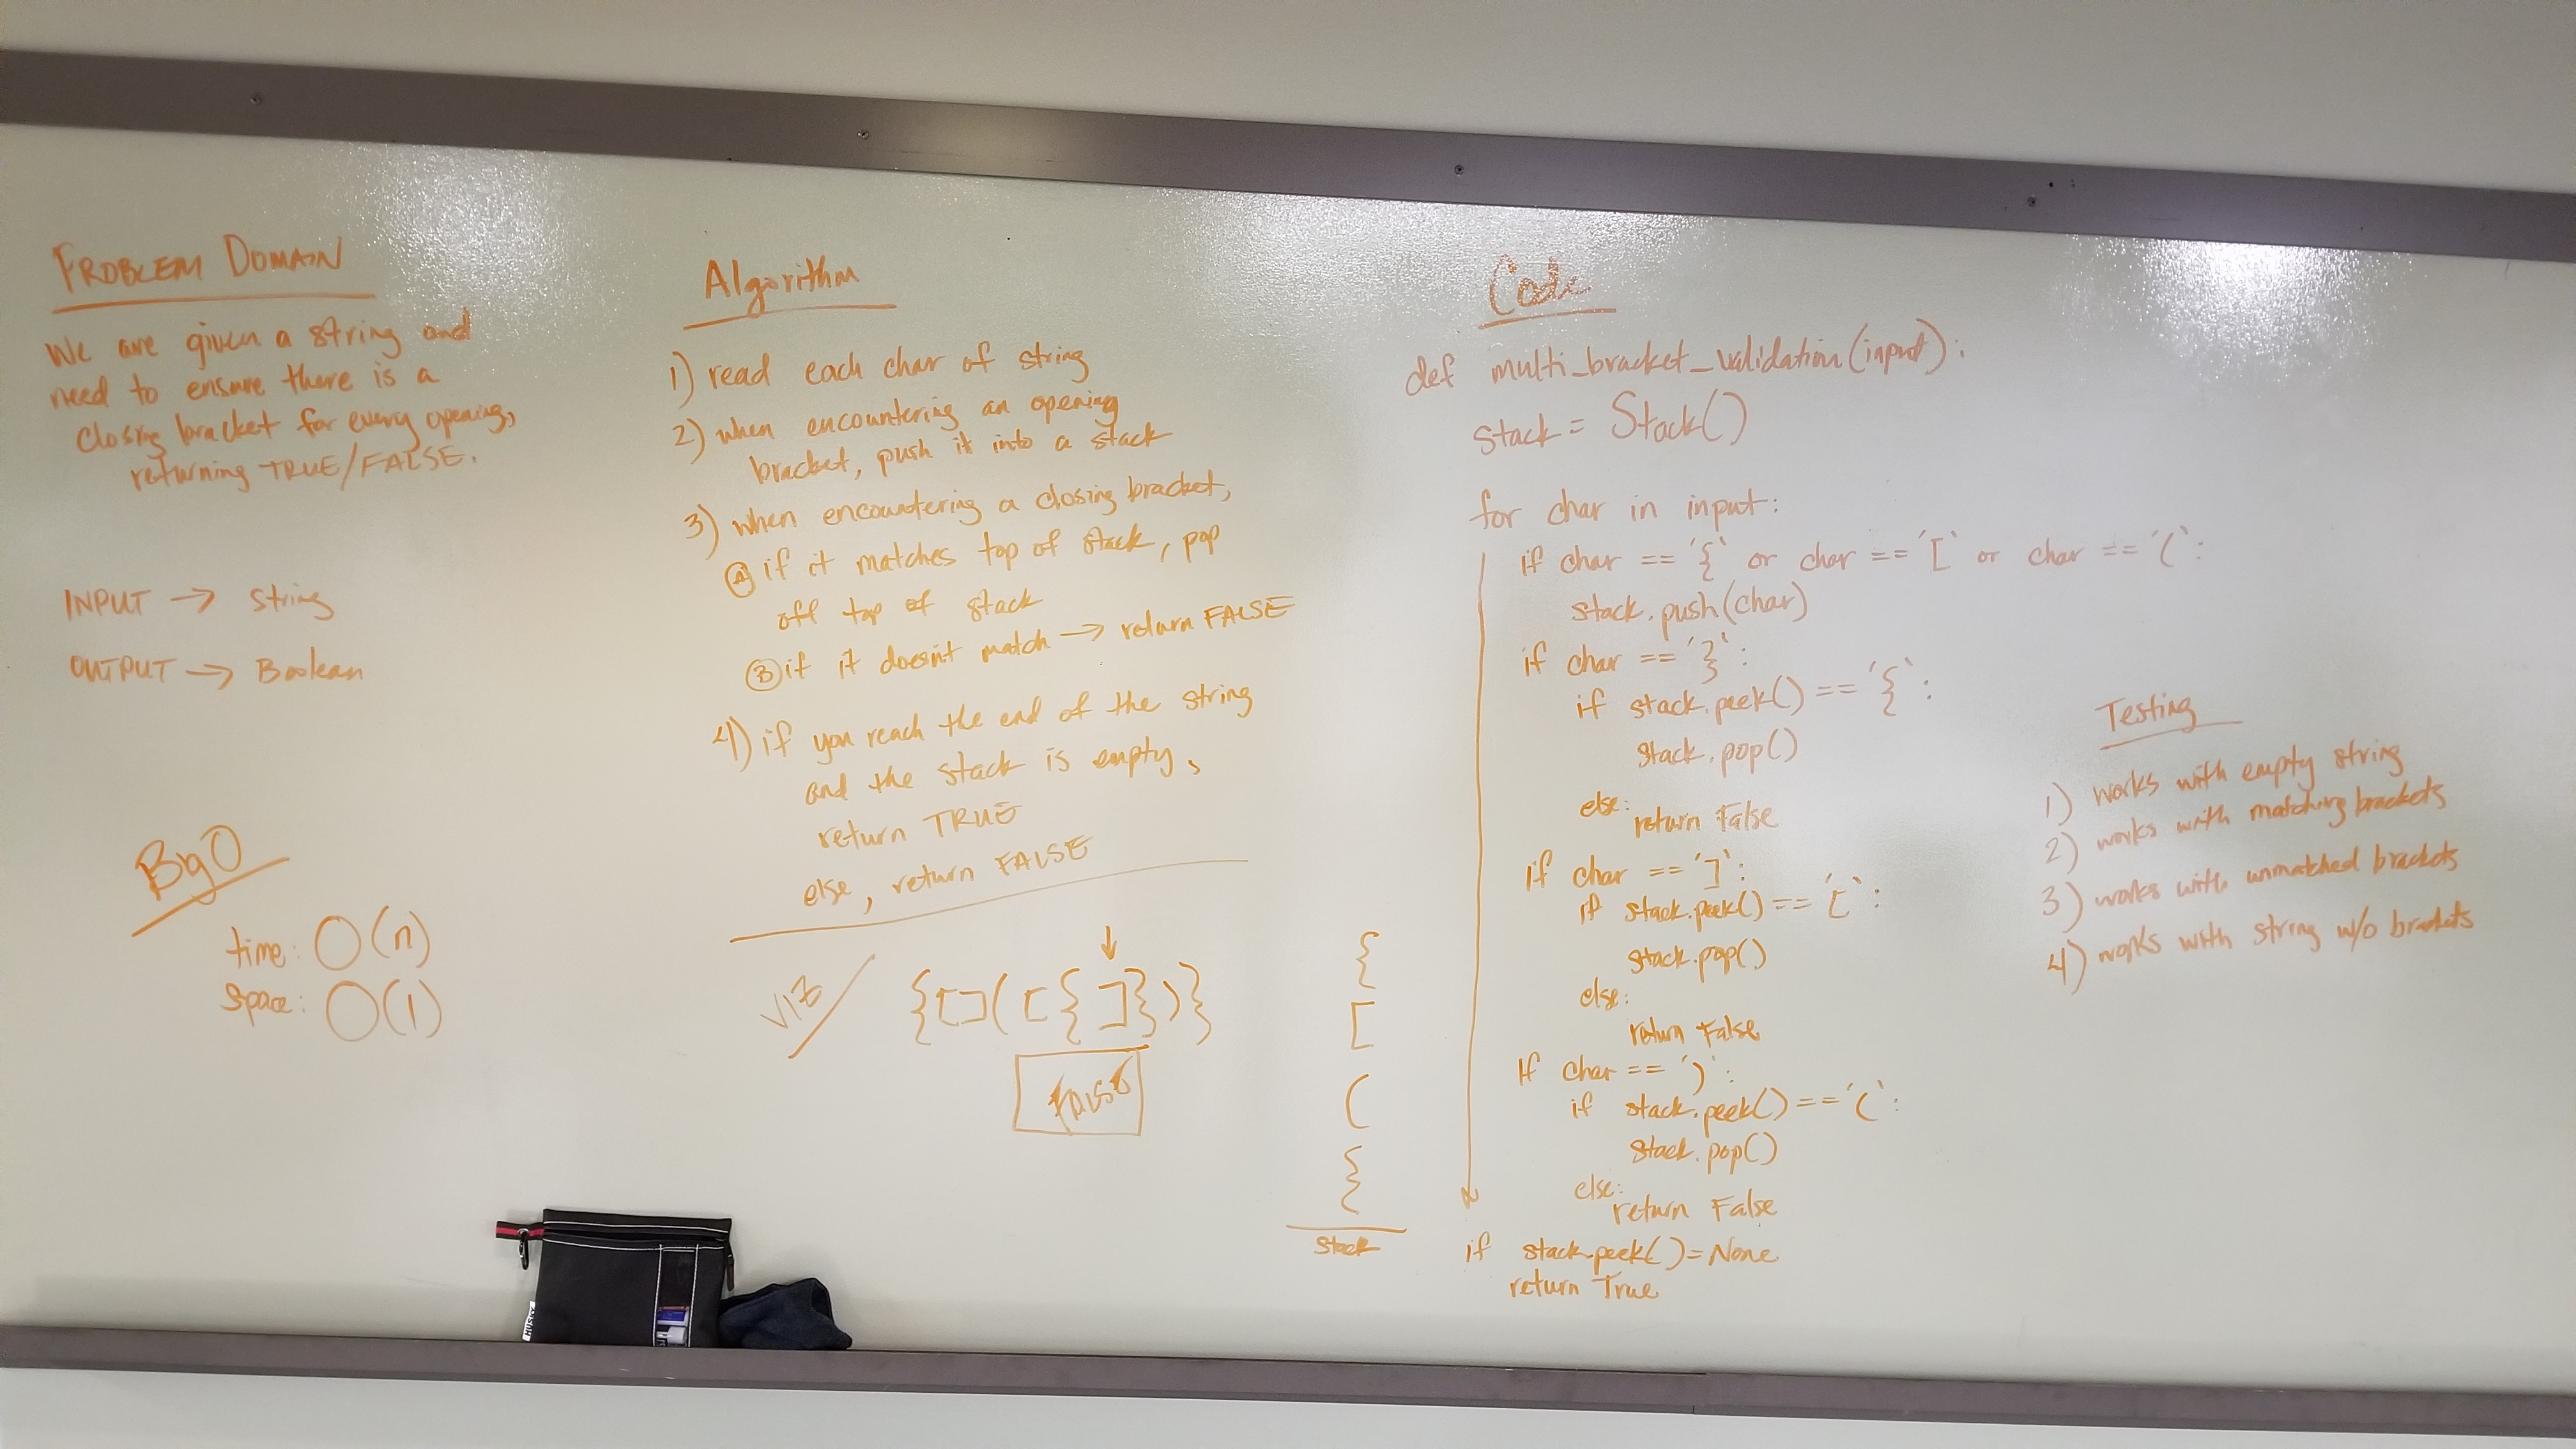 PROBLEM DOMAIN
We are given a string and
need to ensure there is a
closing bracket for every opening,
returning TRUE/FALSE.
INPUT → string
OUTPUT → Boolean
Big O
time: O(n)
space: O(1)
Algorithm
1) read each char of string
2) when encountering an opening
bracket, push it into a stack
3) when encountering a closing bracket,
Ⓐ if it matches top of stack, pop
off top of stack
Ⓑ if it doesn't match → return FALSE
4) if you reach the end of the string
and the stack is empty,
return TRUE
else, return FALSE
VIZ
{[]([{]})}
FALSE
{
[
(
{
Stack
Code
def multi_bracket_validation(input):
stack = Stack()
for char in input:
if char == '{' or char == '[' or char == '(':
stack.push(char)
if char == '}':
if stack.peek() == '{':
stack.pop()
else:
return False
if char == ']':
if stack.peek() == '[':
stack.pop()
else:
return False
If char == ')':
if stack.peek() == '(':
stack.pop()
else:
return False
if stack.peek() = None
return True
Testing
1) works with empty string
2) works with matching brackets
3) works with unmatched brackets
4) works with string w/o brackets
HUSKY